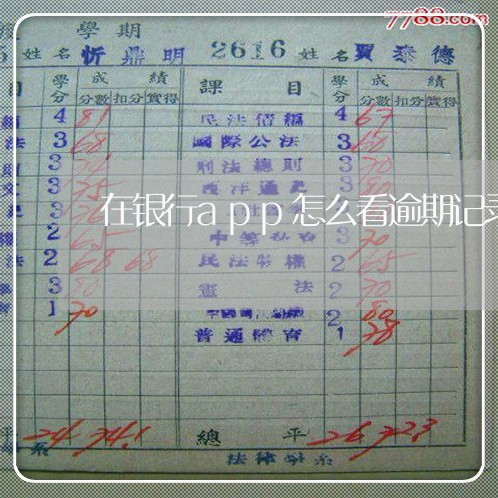 7788.com
學期
姓名忻鼎明 2616 姓名賈泰德
目 學分 成績 課目 學分 成績
分數 扣分 實得 分數 扣分 實得
4 81 民法債編 4 67
法 3 68 國際公法 3 60
3 刑法總則 3 70
文 3 75 西洋通史 3 80
3
在银行app怎么看逾期记录
2 65 3 70
法 2 68 68 民法物權 2 65
3 80 憲法 2 70
1 70 2 80
普通體育 1 78
平 24 74.1 總平 26 72.3
系 法律學系